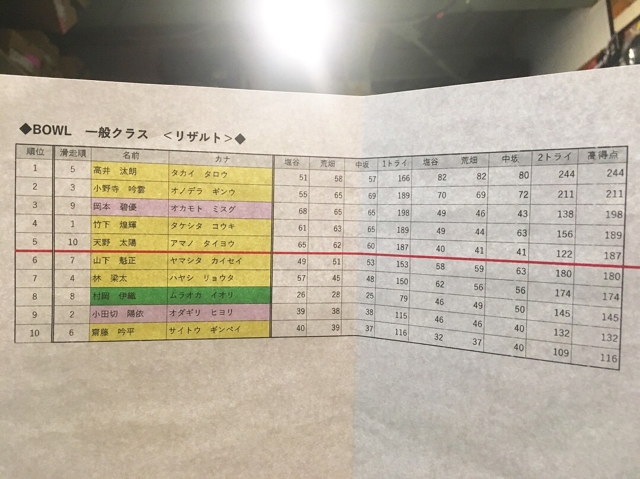 ◆BOWL 一般クラス ＜リザルト＞◆
順位 滑走順 名前 カナ 塩谷 荒畑 中坂 1トライ 塩谷 荒畑 中坂 2トライ 高得点
1 5 高井 汰朗 タカイ タロウ 51 58 57 166 82 82 80 244 244
2 3 小野寺 吟雲 オノデラ ギンウ 55 65 69 189 70 69 72 211 211
3 9 岡本 碧優 オカモト ミスグ 68 65 65 198 49 46 43 138 198
4 1 竹下 煌輝 タケシタ コウキ 61 63 65 189 49 44 63 156 189
5 10 天野 太陽 アマノ タイヨウ 65 62 60 187 40 41 41 122 187
6 7 山下 魁正 ヤマシタ カイセイ 49 51 53 153 58 59 63 180 180
7 4 林 梁太 ハヤシ リョウタ 57 45 48 150 62 56 56 174 174
8 8 村岡 伊織 ムラオカ イオリ 26 28 25 79 46 49 50 145 145
9 2 小田切 陽依 オダギリ ヒヨリ 39 38 38 115 46 46 40 132 132
10 6 齋藤 吟平 サイトウ ギンペイ 40 39 37 116 32 37 40 109 116